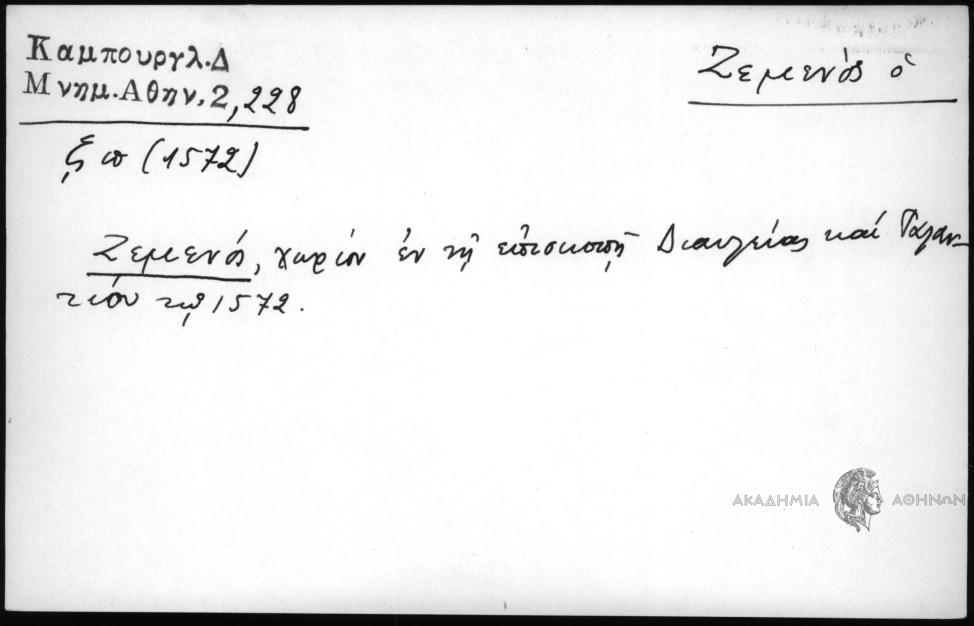 Καμπουργλ.Δ
Μνημ.Αθην.2,228
Ζεμενός ὁ
(1572)
Ζεμενός, χωρίον ἐν τῇ ἐπισκοπῇ Διαυλείας καί Ταλαν-
τίου τῷ 1572.
ΑΚΑΔΗΜΙΑ ΑΘΗΝΩΝ